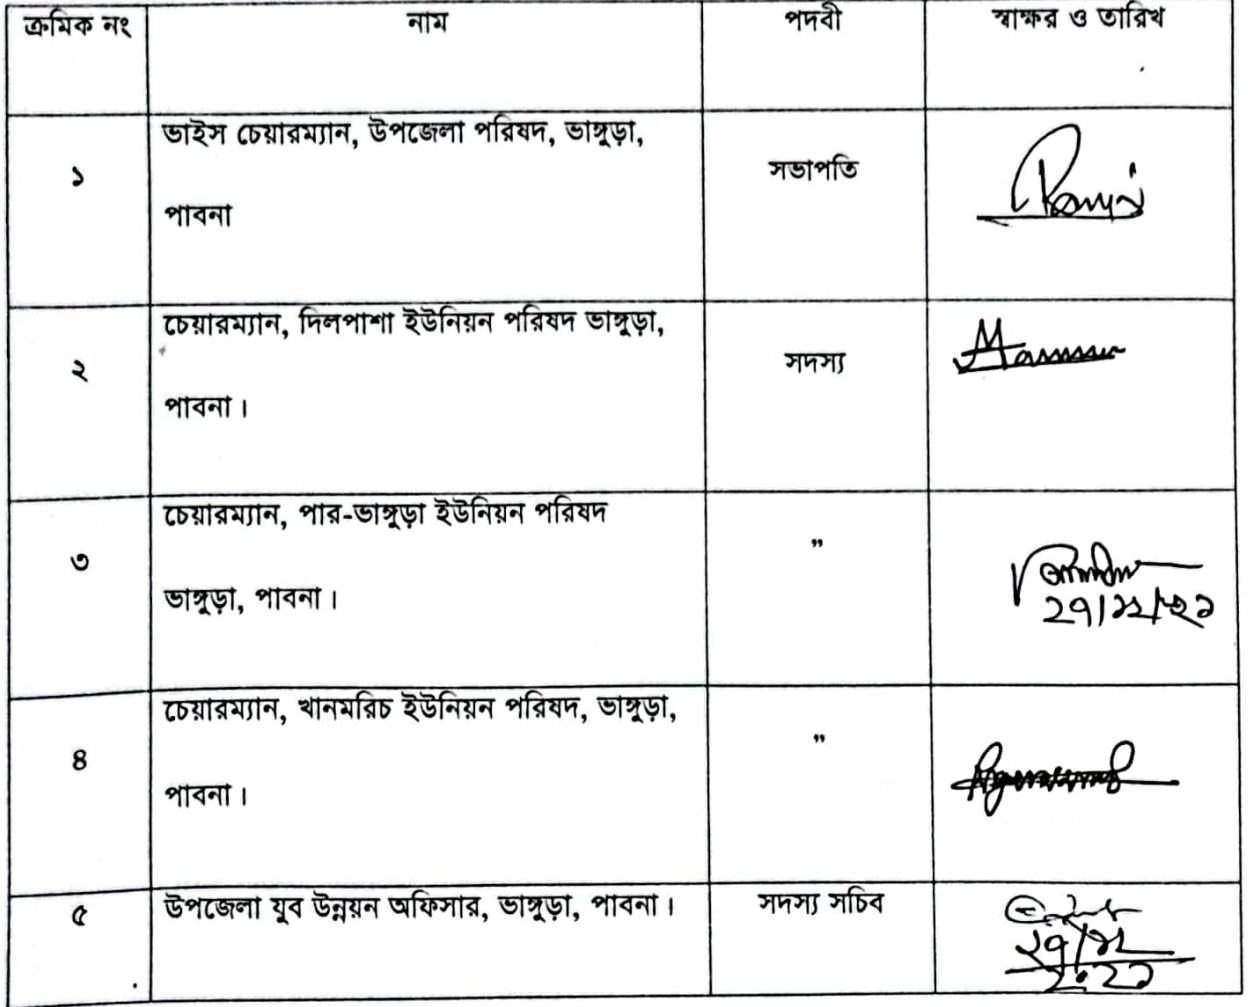 ক্রমিক নং নাম পদবী স্বাক্ষর ও তারিখ
ভাইস চেয়ারম্যান, উপজেলা পরিষদ, ভাঙ্গুড়া,
১ সভাপতি
পাবনা
চেয়ারম্যান, দিলপাশা ইউনিয়ন পরিষদ ভাঙ্গুড়া,
২ সদস্য
পাবনা।
চেয়ারম্যান, পার-ভাঙ্গুড়া ইউনিয়ন পরিষদ
৩ "
ভাঙ্গুড়া, পাবনা।
চেয়ারম্যান, খানমরিচ ইউনিয়ন পরিষদ, ভাঙ্গুড়া,
৪ "
পাবনা।
৫ উপজেলা যুব উন্নয়ন অফিসার, ভাঙ্গুড়া, পাবনা। সদস্য সচিব